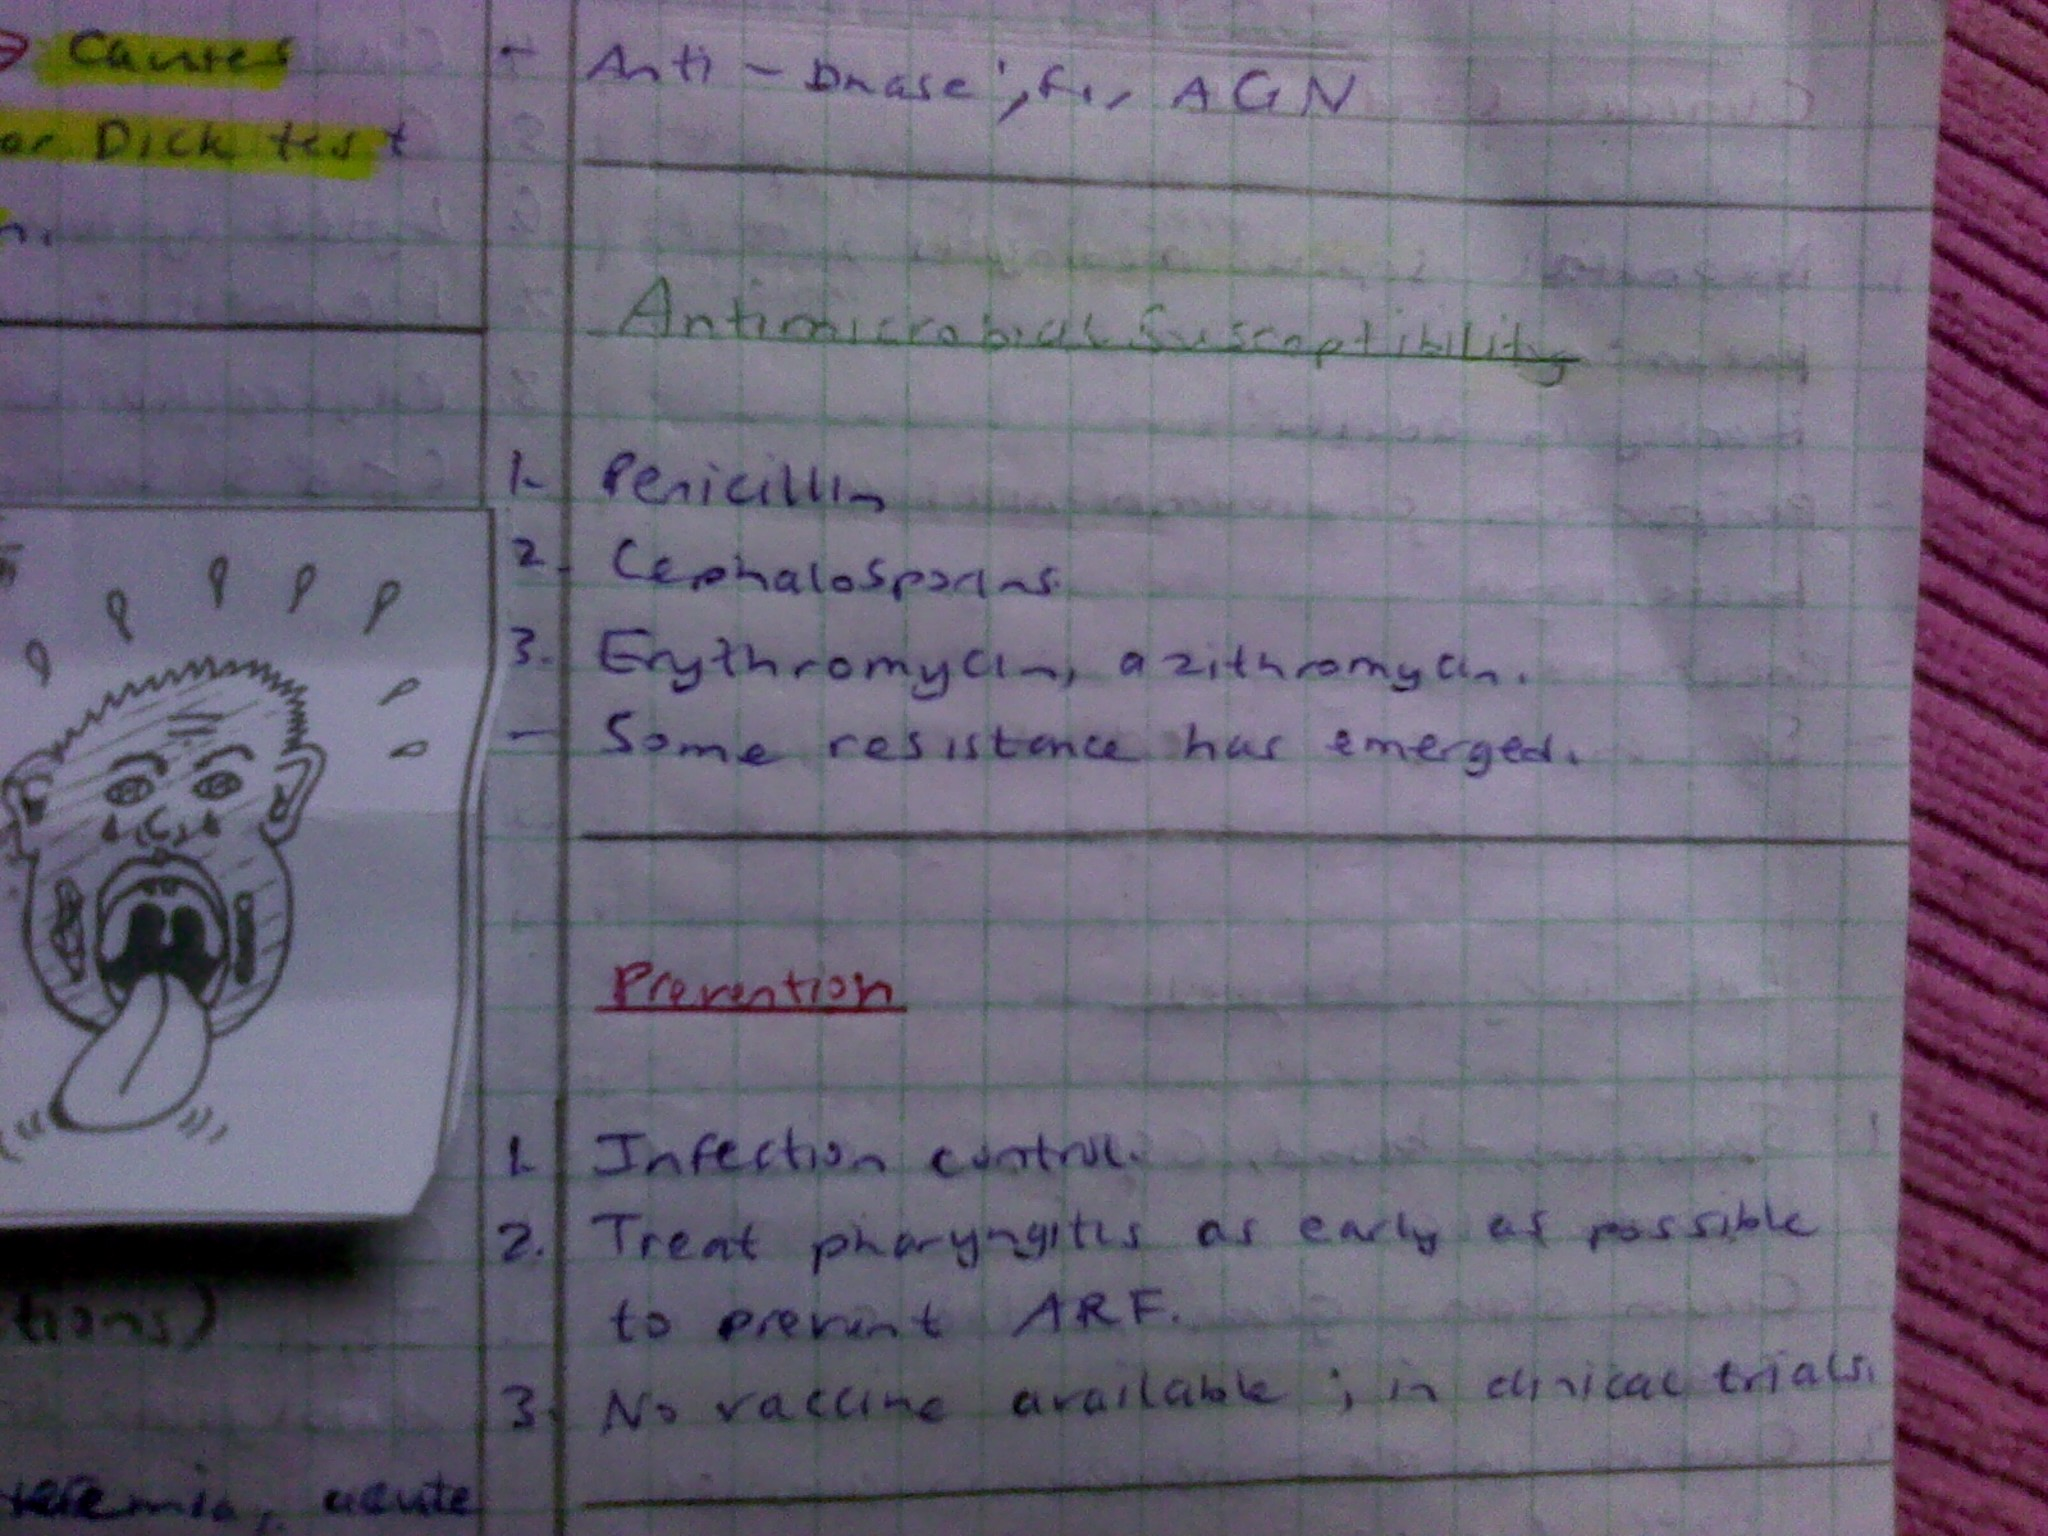 Causes
or Dick test
n.
tions)
temia, acute
- Anti - Dnase ; for AGN
Antimicrobial Susceptibility
1. Penicillin
2. Cephalosporins.
3. Erythromycin, azithromycin.
- Some resistance has emerged.
Prevention
1. Infection control.
2. Treat pharyngitis as early as possible
to prevent ARF.
3. No vaccine available ; in clinical trials.